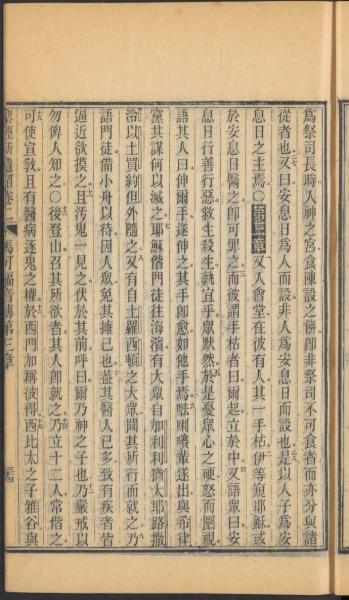 爲祭司長時入神之宮食陳設之餠卽非祭司不可食者而亦分與諸
從者也又曰安息日爲人而設非人爲安息日而設也是以人子爲安
息日之主焉○第三章又入會堂在彼有人其一手枯伊等窺耶穌或
於安息日醫之卽可罪之而彼謂手枯者曰爾起立於中又語眾曰安
息日行善行惡救生殺生孰宜乎眾默然於是憂眾心之硬怒而圍視
語其人曰伸爾手遂伸之其手卽愈如他手焉𠵽唎㘔輩遂出與希律
黨共謀何以滅之耶穌偕門徒往海濱有大眾自加利利猶太耶路撒
冷以土買約但外隨之又有自土羅西頓之大眾聞其所行而就之乃
語門徒備小舟以待因人眾免其擁已也蓋其醫人已多致有疾者皆
逼近欲摸之且汚鬼一見之伏於其前呼曰爾乃神之子也乃嚴戒以
勿俾人知之○後登山召其所欲者其人卽就之乃立十二人常偕之
可使宣敎且有醫病逐鬼之權於西門加稱彼得西比太之子雅谷與
聖經新遺詔卷二 馬可福音傳第三章